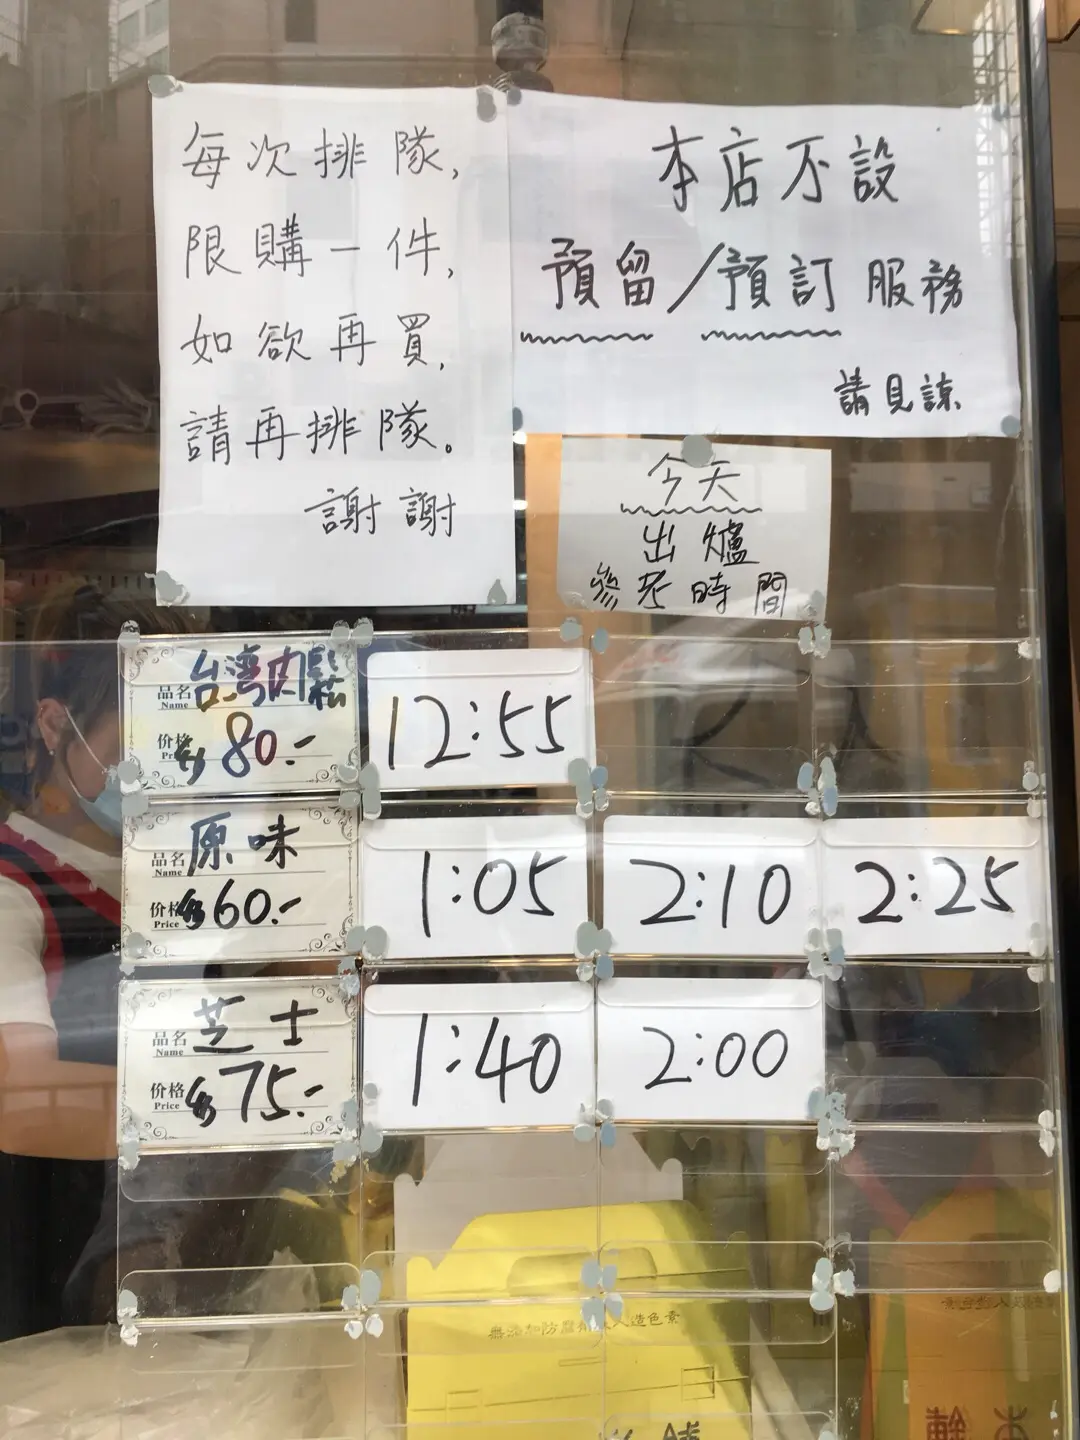 每次排隊,
限購一件,
如欲再買,
請再排隊。
謝謝
本店不設
預留/預訂服務
請見諒
今天
出爐
參考時間
品名 台湾肉鬆
Name
价格 $80.-
12:55
品名 原味
Name
价格 $60.-
Price
1:05
2:10
2:25
品名 芝士
Name
价格 $75.-
Price
1:40
2:00
無添加防腐劑 人造色素